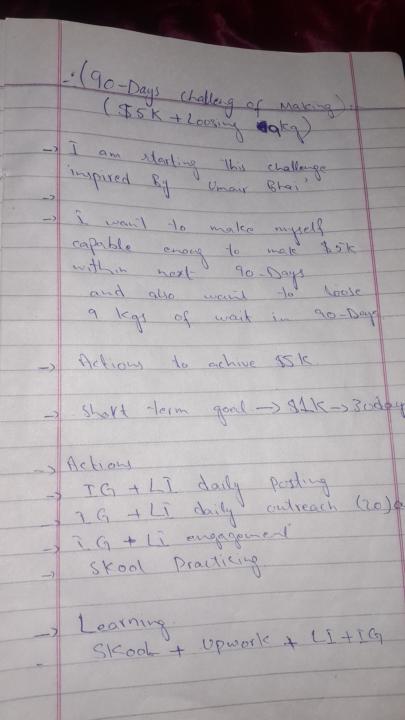 (90-Days challeng of Making)
($5K + Loosing 9kg)
→ I am starting this challenge
inspired By Umair Bhai
→
→ i want to make myself
capable enoug to mak $5k
within next 90-Days
and also want to loose
9 kgs of wait in 90-Days
→ Actions to achive $5K
→ short term goal → $1K → 30day
→ Actions
→ IG + LI daily posting
→ IG + LI daily outreach (20)
→ IG + Li engagement
→ Skool Practicing
→ Learning
Skool + Upwork + LI + IG